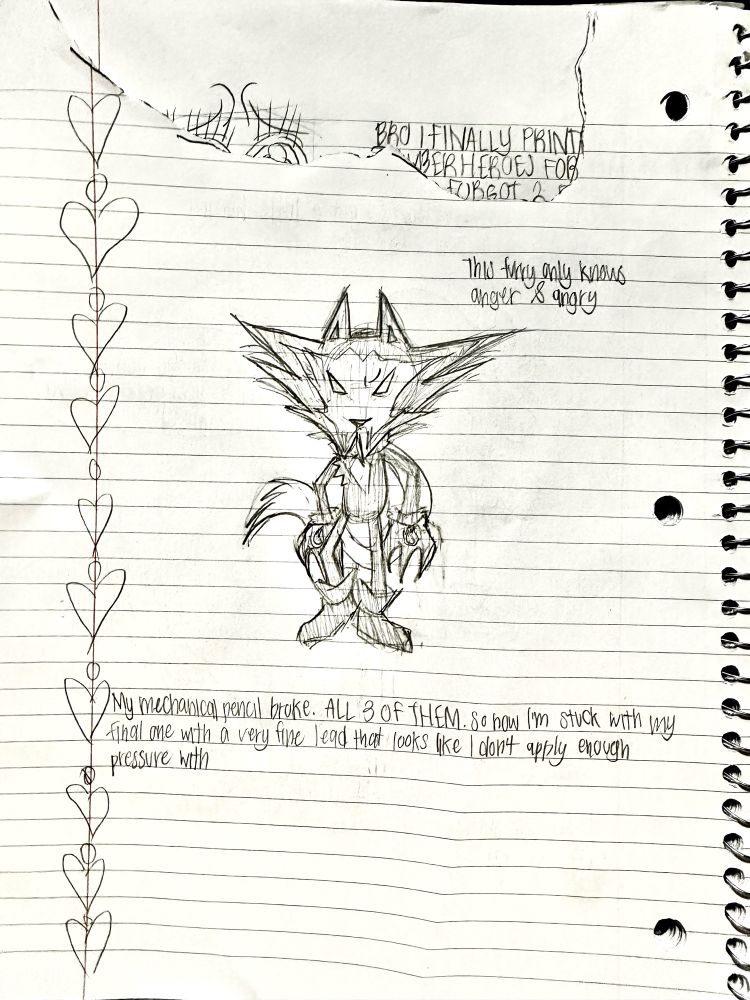 BRO I FINALLY PRINT
BERHEROES FOR
FORGOT 2
This furry only knows
anger & angry
My mechanical pencil broke. ALL 3 OF THEM. So now I'm stuck with my
final one with a very fine lead that looks like I don't apply enough
pressure with